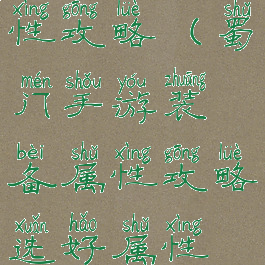 xìng gōng lüè shǔ
性攻略（蜀
mén shǒu yóu zhuāng
门手游装
bèi shǔ xìng gōng lüè
备属性攻略
xuǎn hǎo shǔ xìng
选好属性